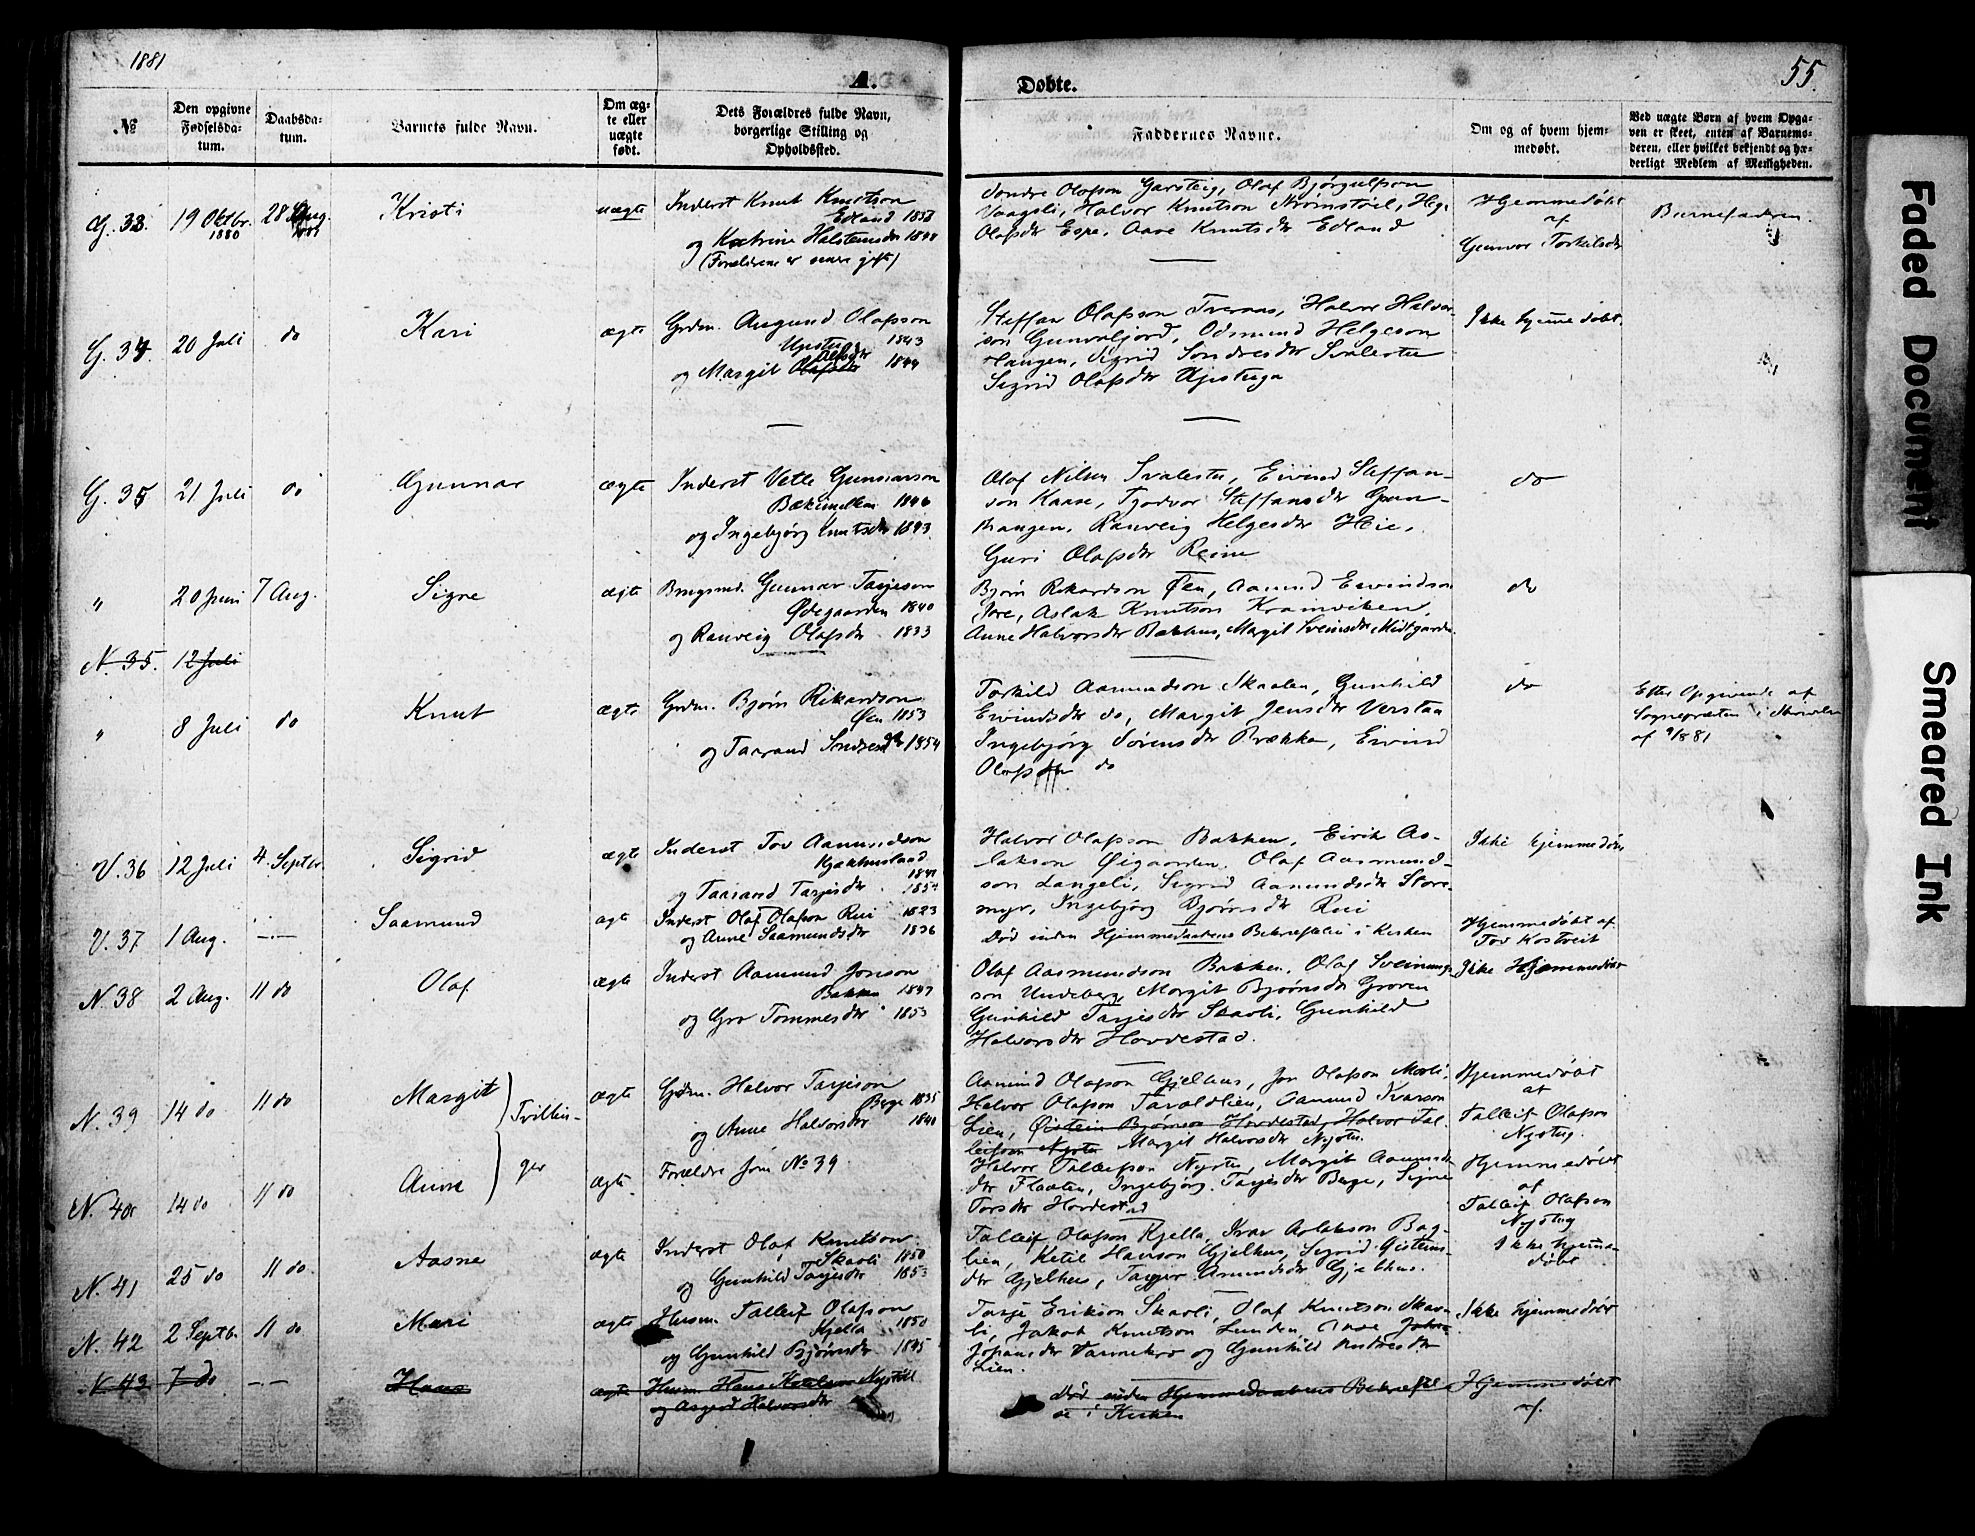 1881
A.
Døbte.
55.
№
Den opgivne Fødselsdatum.
Daabsdatum.
Barnets fulde Navn.
Om ægte eller uægte født.
Dets Forældres fulde Navn, borgerlige Stilling og Opholdssted.
Faddernes Navne.
Om og af hvem hjemmedøbt.
Ved uægte Børn af hvem Opgaven er skeet, enten af Barnemoderen, eller hvilket bekjendt og hæderligt Medlem af Menigheden.
G. 33. 19 Oktbr. 1880 28 Aug. Kristi uægte
Inderst Knut Knutson
Edland 1853
og Katrine Halsteinsdtr 1848
(Forældrene er senere gift)
Sondre Olafson Garsteig, Olaf Bjørgulfson
Vaagsli, Halvor Knutson Strømstøil,
Olafsdtr Espe, Aase Knutsdtr Edland
Hjemmedøbt
af
Gunvor Torkilsdtr
Barnefaderen.
G. 34. 20 Juli do Kari ægte
Grdm. Augund Olafson
1843
og Margit Olafsdtr 1844
Steffan Olafson Tveraas, Halvor Halvor-
son Gunvaljord, Odmund Helgeson
Haugen, Sigrid Sondresdtr Svalestu
Sigrid Olafsdtr Upistuga
Ikke hjemmedøbt.
G. 35 21 Juli do Gunnar ægte
Inderst Vetle Gunnarson
Bækimellem 1846
og Ingebjørg Knutsdtr 1843
Olaf Nilsen Svalestu, Eivind Steffan-
son Kaase, Tjodvor Steffansdtr
Haugen, Ranveig Helgesdtr Heie,
Guri Olafsdtr Reime
do
" 20 Juni 7 Aug. Signe ægte
Brugsmd. Gunnar Tarjeson
Ødegaarden 1840
og Ranveig Olafsdtr. 1833
Bjørn Rikardson Øen, Aamund Eivindson
Aslak Knutson Kromviken,
Anne Halvorsdtr Bakhus, Margit Sveinsdtr Midtgarden.
do
N. 35. 12 Juli
" 8 Juli do Knut ægte
Grdm. Bjørn Rikardson
Øen 1853
og Taarand Sondresdtr 1854
Torkild Aamundson Skaalen, Gunhild
Eivindsdtr do, Margit Jensdtr Verstaa
Ingebjørg Sørensdtr Brække, Eivind
Olafson do
do
Efter Opgivende af
Sognepresten i
af 9/8 81
V. 36 12 Juli 4. Septbr. Sigrid ægte
Inderst Tov Aamundson
1849
og Taarand Tarjeisdtr. 1854
Halvor Olafson Bakken, Eirik As-
lakson Øigaarden, Olaf Aasmund-
son Langeli, Sigrid Aamundsdtr Store-
myr, Ingebjørg Bjørnsdtr Rui
Ikke hjemmedøbt
V. 37 1 Aug. -.- Saamund ægte
Inderst Olaf Olafson Rui 1823
og Anne Saamundsdtr 1836
Død inden Hjemmedaabens Bekræftelse i Kirken
Hjemmedøbt af
Tov Kostveit
N. 38 2 Aug. 11 do Olaf ægte
Inderst Aamund Jonson
Bakken 1847
og Gro Tommesdtr 1853
Olaf Aasmundson Bakken, Olaf Sveinung-
son Undeberg, Margit Bjørnsdtr Groven
Gunhild Tarjeisdtr Skaali, Gunhild
Halvorsdtr Hovdestad.
Ikke Hjemmedøbt
N. 39 14 do 11 do Margit Tvillin- ægte
Gdm. Halvor Tarjeson
Berge 1835
og Anne Halvorsdtr 1840
Aamund Olafson Gjelhus, Jon Olafson Morli,
Halvor Olafson Taraldlien, Aamund Ivarson
Lien, Øistein Bjørnson Hovdestad, Halvor Tal-
leifson Nystu Margit Halvorsdtr Nystu.
Hjemmedøbt
af
Talleif Olafson
Nystug.
N. 40 14 do 11 do Anne ger ægte.
Forældre som No 39
Halvor Talleifson Nystu, Margit Aamunds-
dtr Flaaten, Ingebjørg Tarjeisdtr Berge, Signe
Torsdtr Hovdestad
Hjemmedøbt
af
Talleif Olafson
Nystug
N. 41 25 do 11 do. Aasne ægte
Inderst Olaf Knutson
Skaali 1850
og Gunhild Tarjeisdtr 1853
Talleif Olafson Kjella, Ivar Aslakson Bag-
lien, Ketil Hanson Gjelhus, Sigrid Øisteins-
dtr Gjelhus, Aamundsdtr Gjelhus.
Ikke hjemme-
døbt
N. 42 2 Septb. 11 do Mari ægte
Husm. Talleif Olafson
Kjella 1850
og Gunhild Bjørnsdtr 1845
Tarje Erikson Skaali, Olaf Knutson Skaa-
li, Jakob Knutson Lunden, Aase
Johansdtr Vaamekro og Gunhild Andresdtr
Lien.
Ikke hjemmedøbt
N 43 7 do -.- Hans ægte
Husm. Hans Ketilson Nystøl
og Asgerd Halvorsdtr
Død inden Hjemmedaabens Bekræftel-
se i Kirken
Hjemmedøbt
af.
Faded Document
Smeared Ink